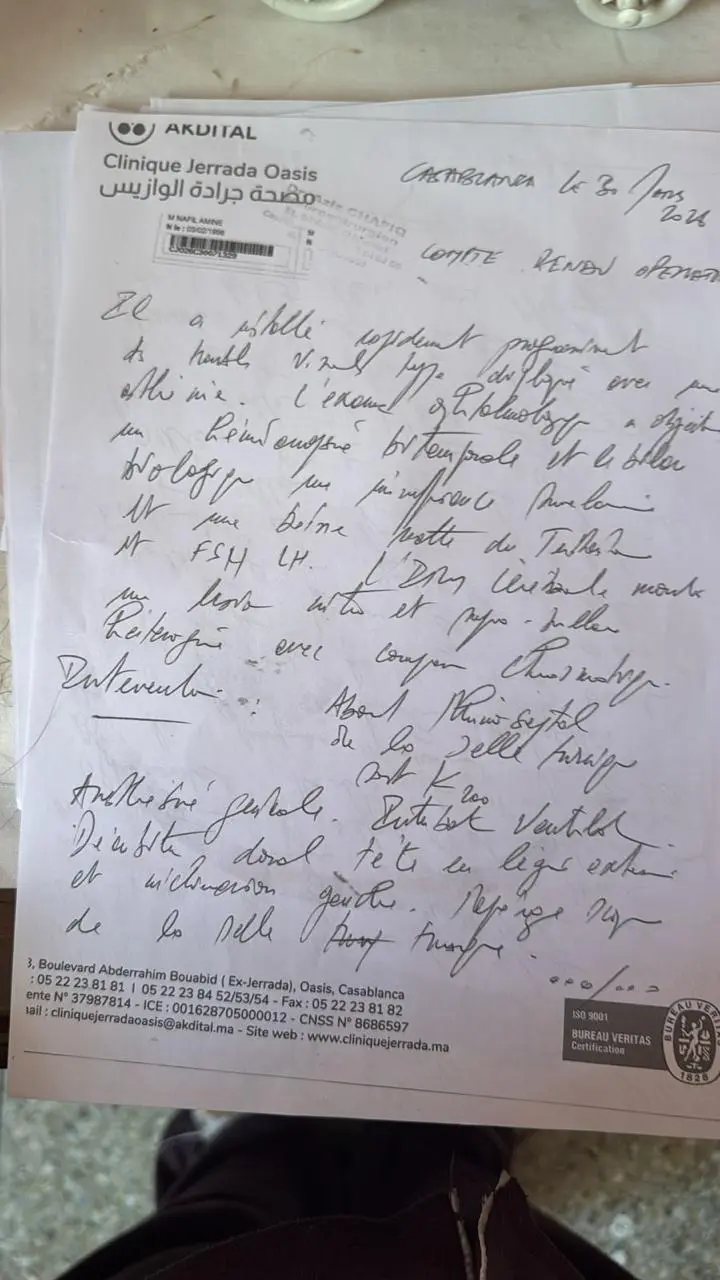 AKDITAL
Clinique Jerrada Oasis
مصحة جرادة الوازيس
CASABLANCA LE 30
2026
M NAFIL AMINE
N le : 03/02/1998
CHAFIQ
COMPTE RENDU OPERATO
Il a installé rapidement progressivement
de trouble visuels type avec une
asthénie. L'examen ophtalmologique a objectivé
un hémianopsie bitemporale et le bilan
biologique une insuffisance
et une baisse de
et FSH LH. L'IRM cérébrale montre
une lésion intra et supra-sellaire
hétérogène avec compression chiasmatique.
Intervention :
Abord Rhinoseptal
de la selle turcique
Anesthésie générale. Ventilat
Décubitus dorsal tête en légère extension
et inclinaison gauche. Repérage
de la selle turcique.
.../...
3, Boulevard Abderrahim Bouabid ( Ex-Jerrada), Oasis, Casablanca
: 05 22 23 81 81 I 05 22 23 84 52/53/54 - Fax : 05 22 23 81 82
ente N° 37987814 - ICE : 001628705000012 - CNSS N° 8686597
ail : cliniquejerradaoasis@akdital.ma - Site web : www.cliniquejerrada.ma
ISO 9001
BUREAU VERITAS
Certification
BUREAU VERI
1828